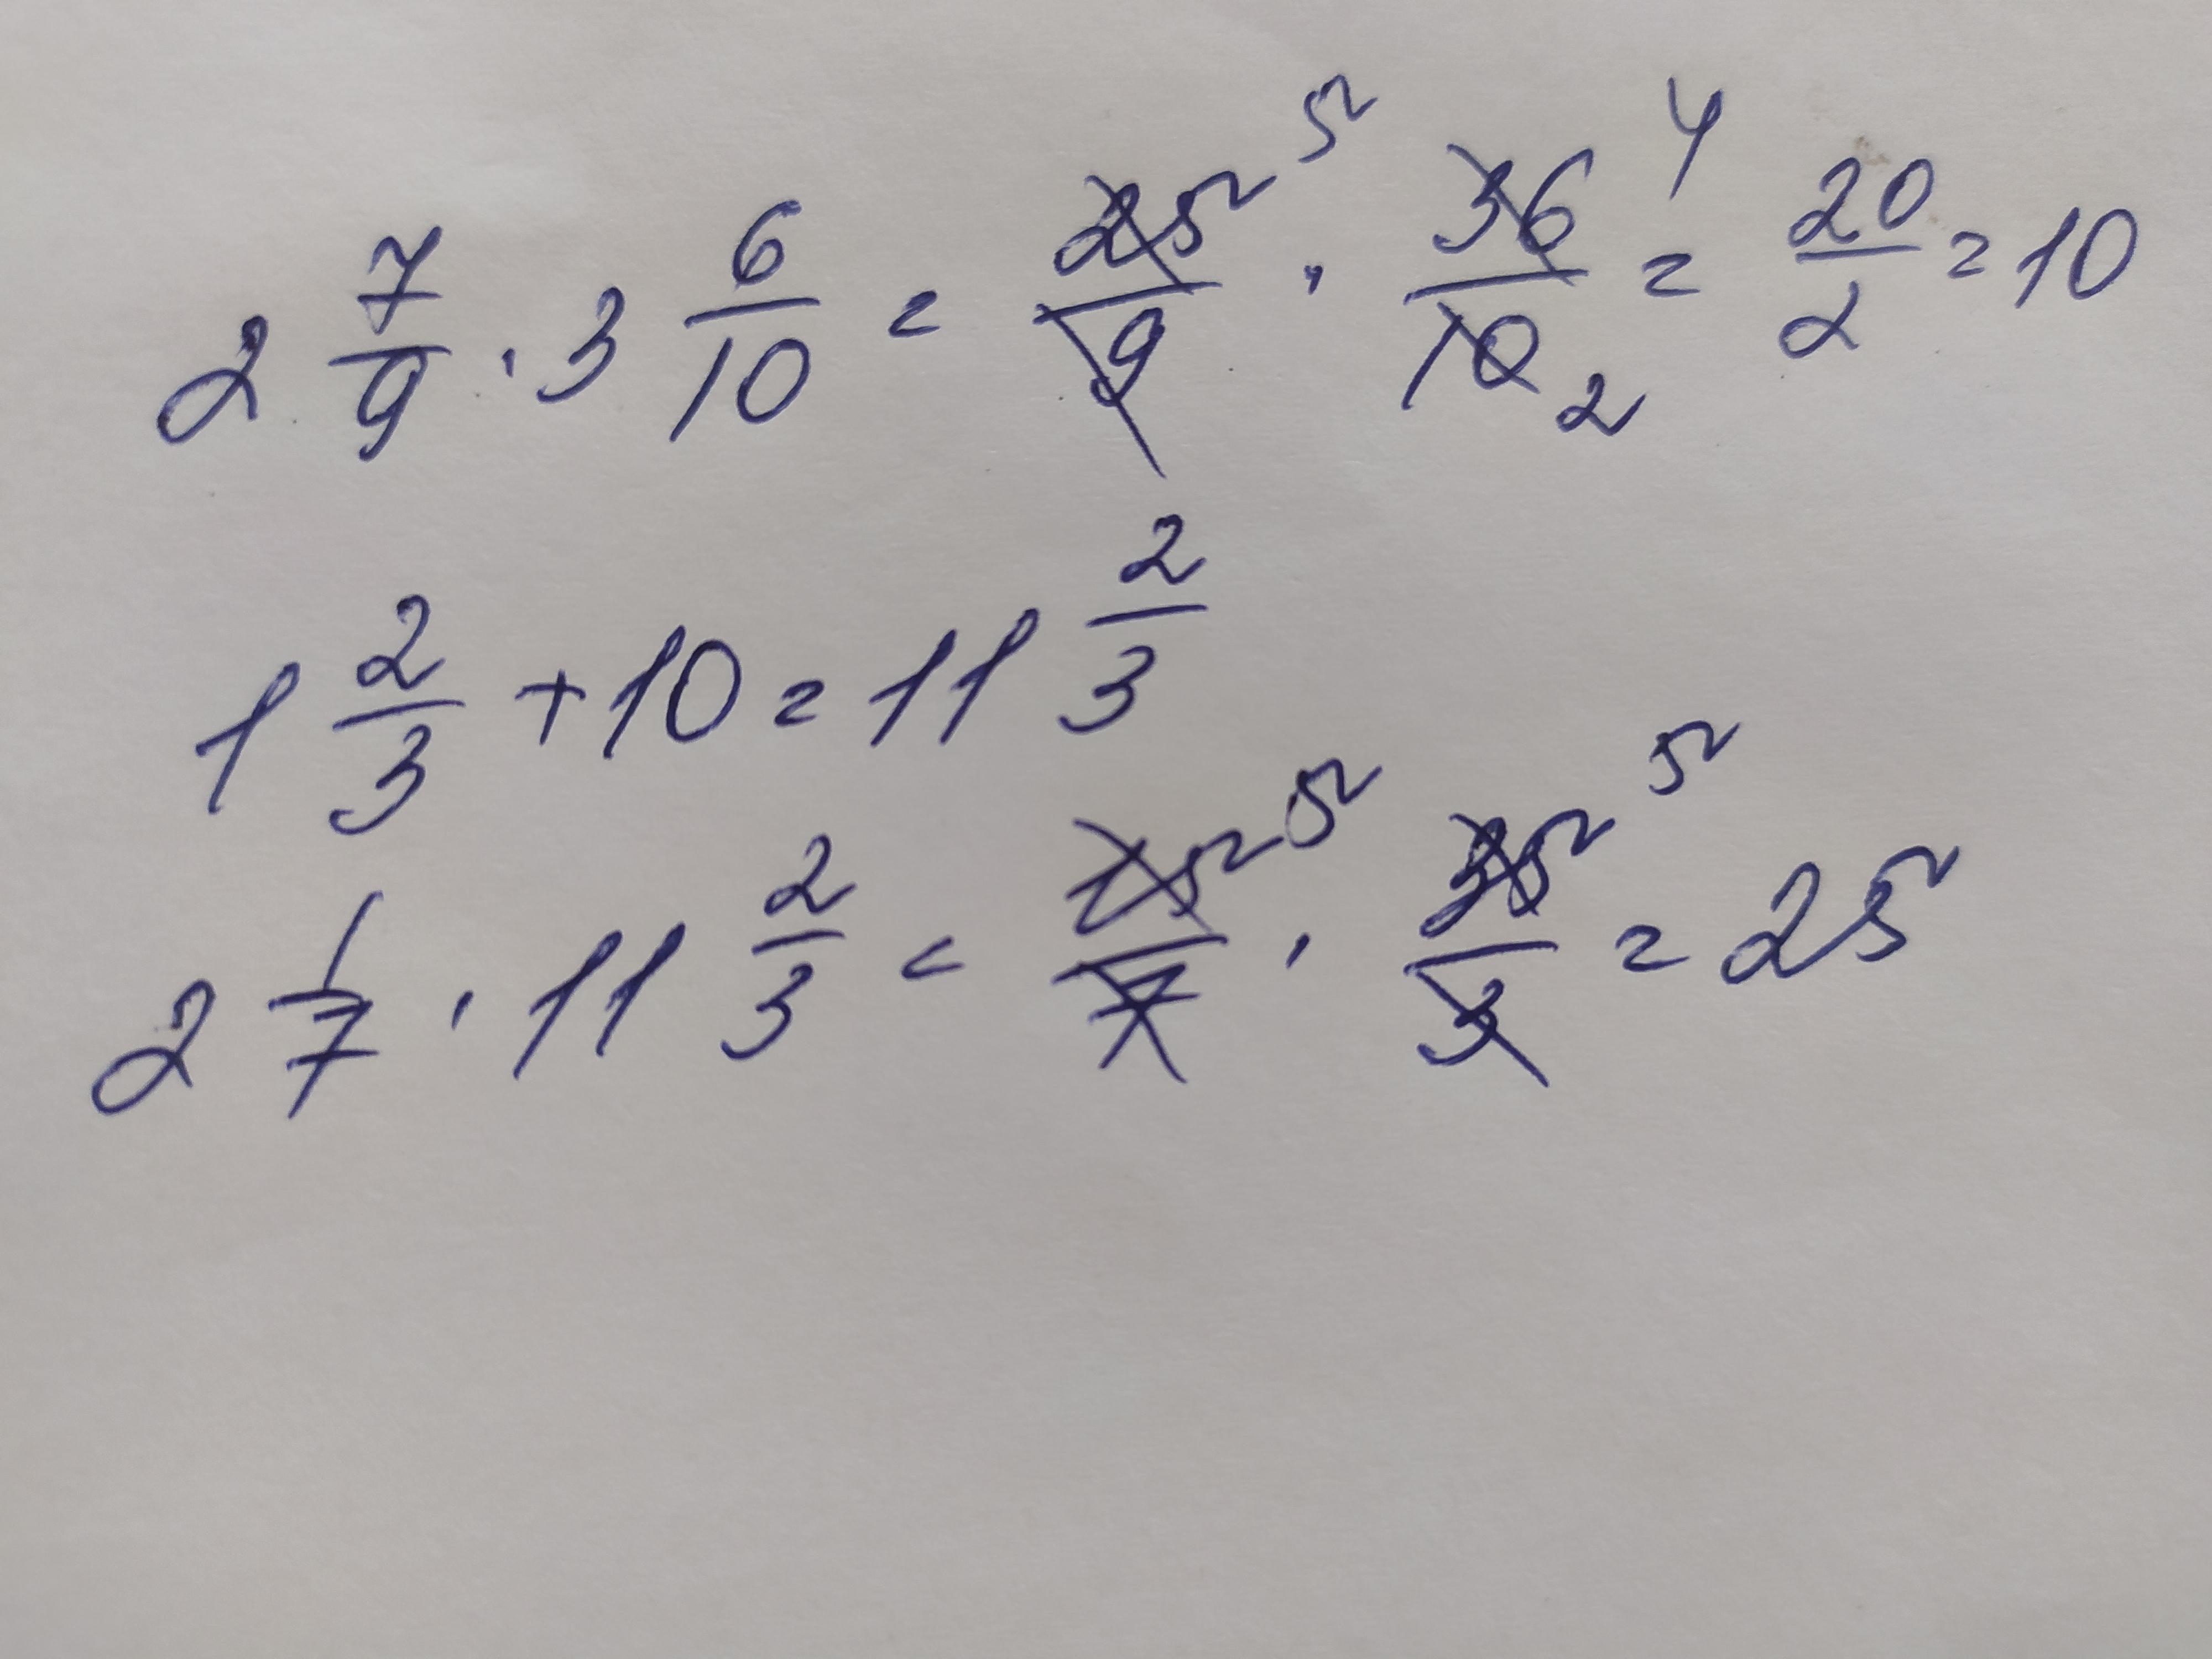 2 7/9 · 3 6/10 = 25/9 5 · 36/10 4 2 = 20/2 = 10
1 2/3 + 10 = 11 2/3
2 1/7 · 11 2/3 = 15/7 5 · 35/3 5 = 25